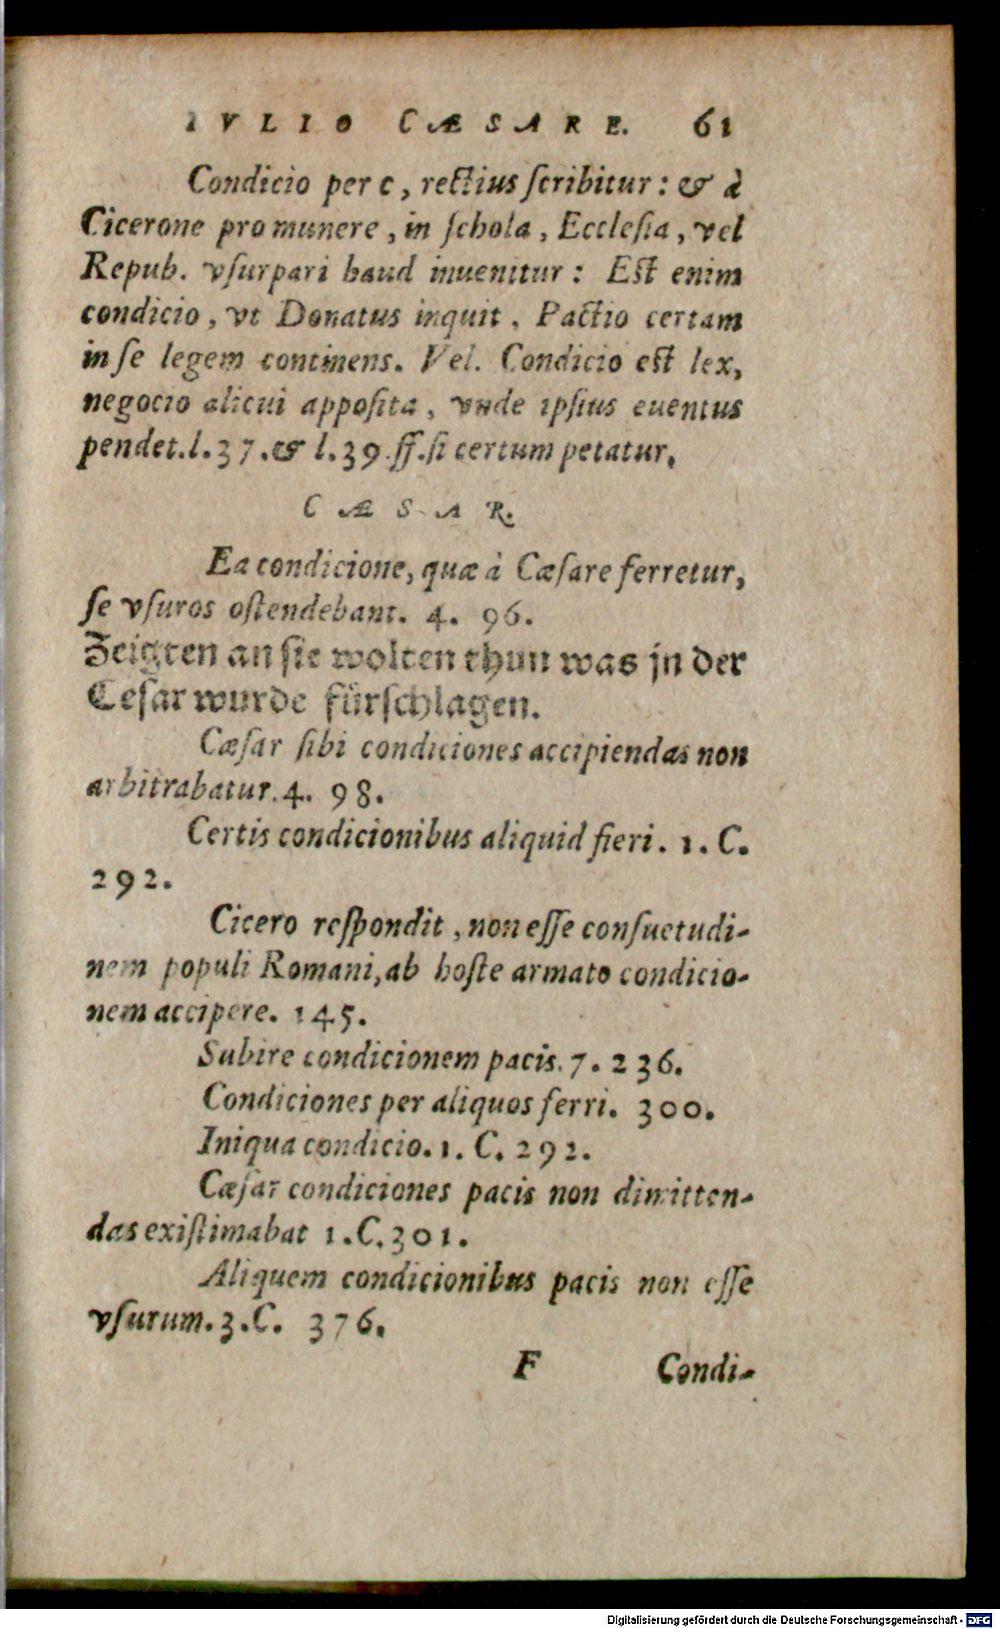 IVLIO CÆSARE. 61
Condicio per c, rectius ſcribitur: & à
Cicerone pro munere, in ſchola, Eccleſia, vel
Repub. vſurpari haud inuenitur: Eſt enim
condicio, vt Donatus inquit. Pactio certam
in ſe legem continens. Vel. Condicio eſt lex,
negocio alicui appoſita, vnde ipſius euentus
pendet. l. 37. & l. 39. ff. ſi certum petatur.
CÆSAR.
Ea condicione, quæ à Cæſare ferretur,
ſe vſuros oſtendebant. 4. 96.
Zeigten an ſie wolten thun was jn der
Ceſar wurde fürſchlagen.
Cæſar ſibi condiciones accipiendas non
arbitrabatur. 4. 98.
Certis condicionibus aliquid fieri. 1. C.
292.
Cicero reſpondit, non eſſe conſuetudi-
nem populi Romani, ab hoſte armato condicio-
nem accipere. 145.
Subire condicionem pacis. 7. 236.
Condiciones per aliquos ferri. 300.
Iniqua condicio. 1. C. 292.
Cæſar condiciones pacis non dimitten-
das exiſtimabat 1. C. 301.
Aliquem condicionibus pacis non eſſe
vſurum. 3. C. 376.
F Condi-
Digitalisierung gefördert durch die Deutsche Forschungsgemeinschaft - DFG